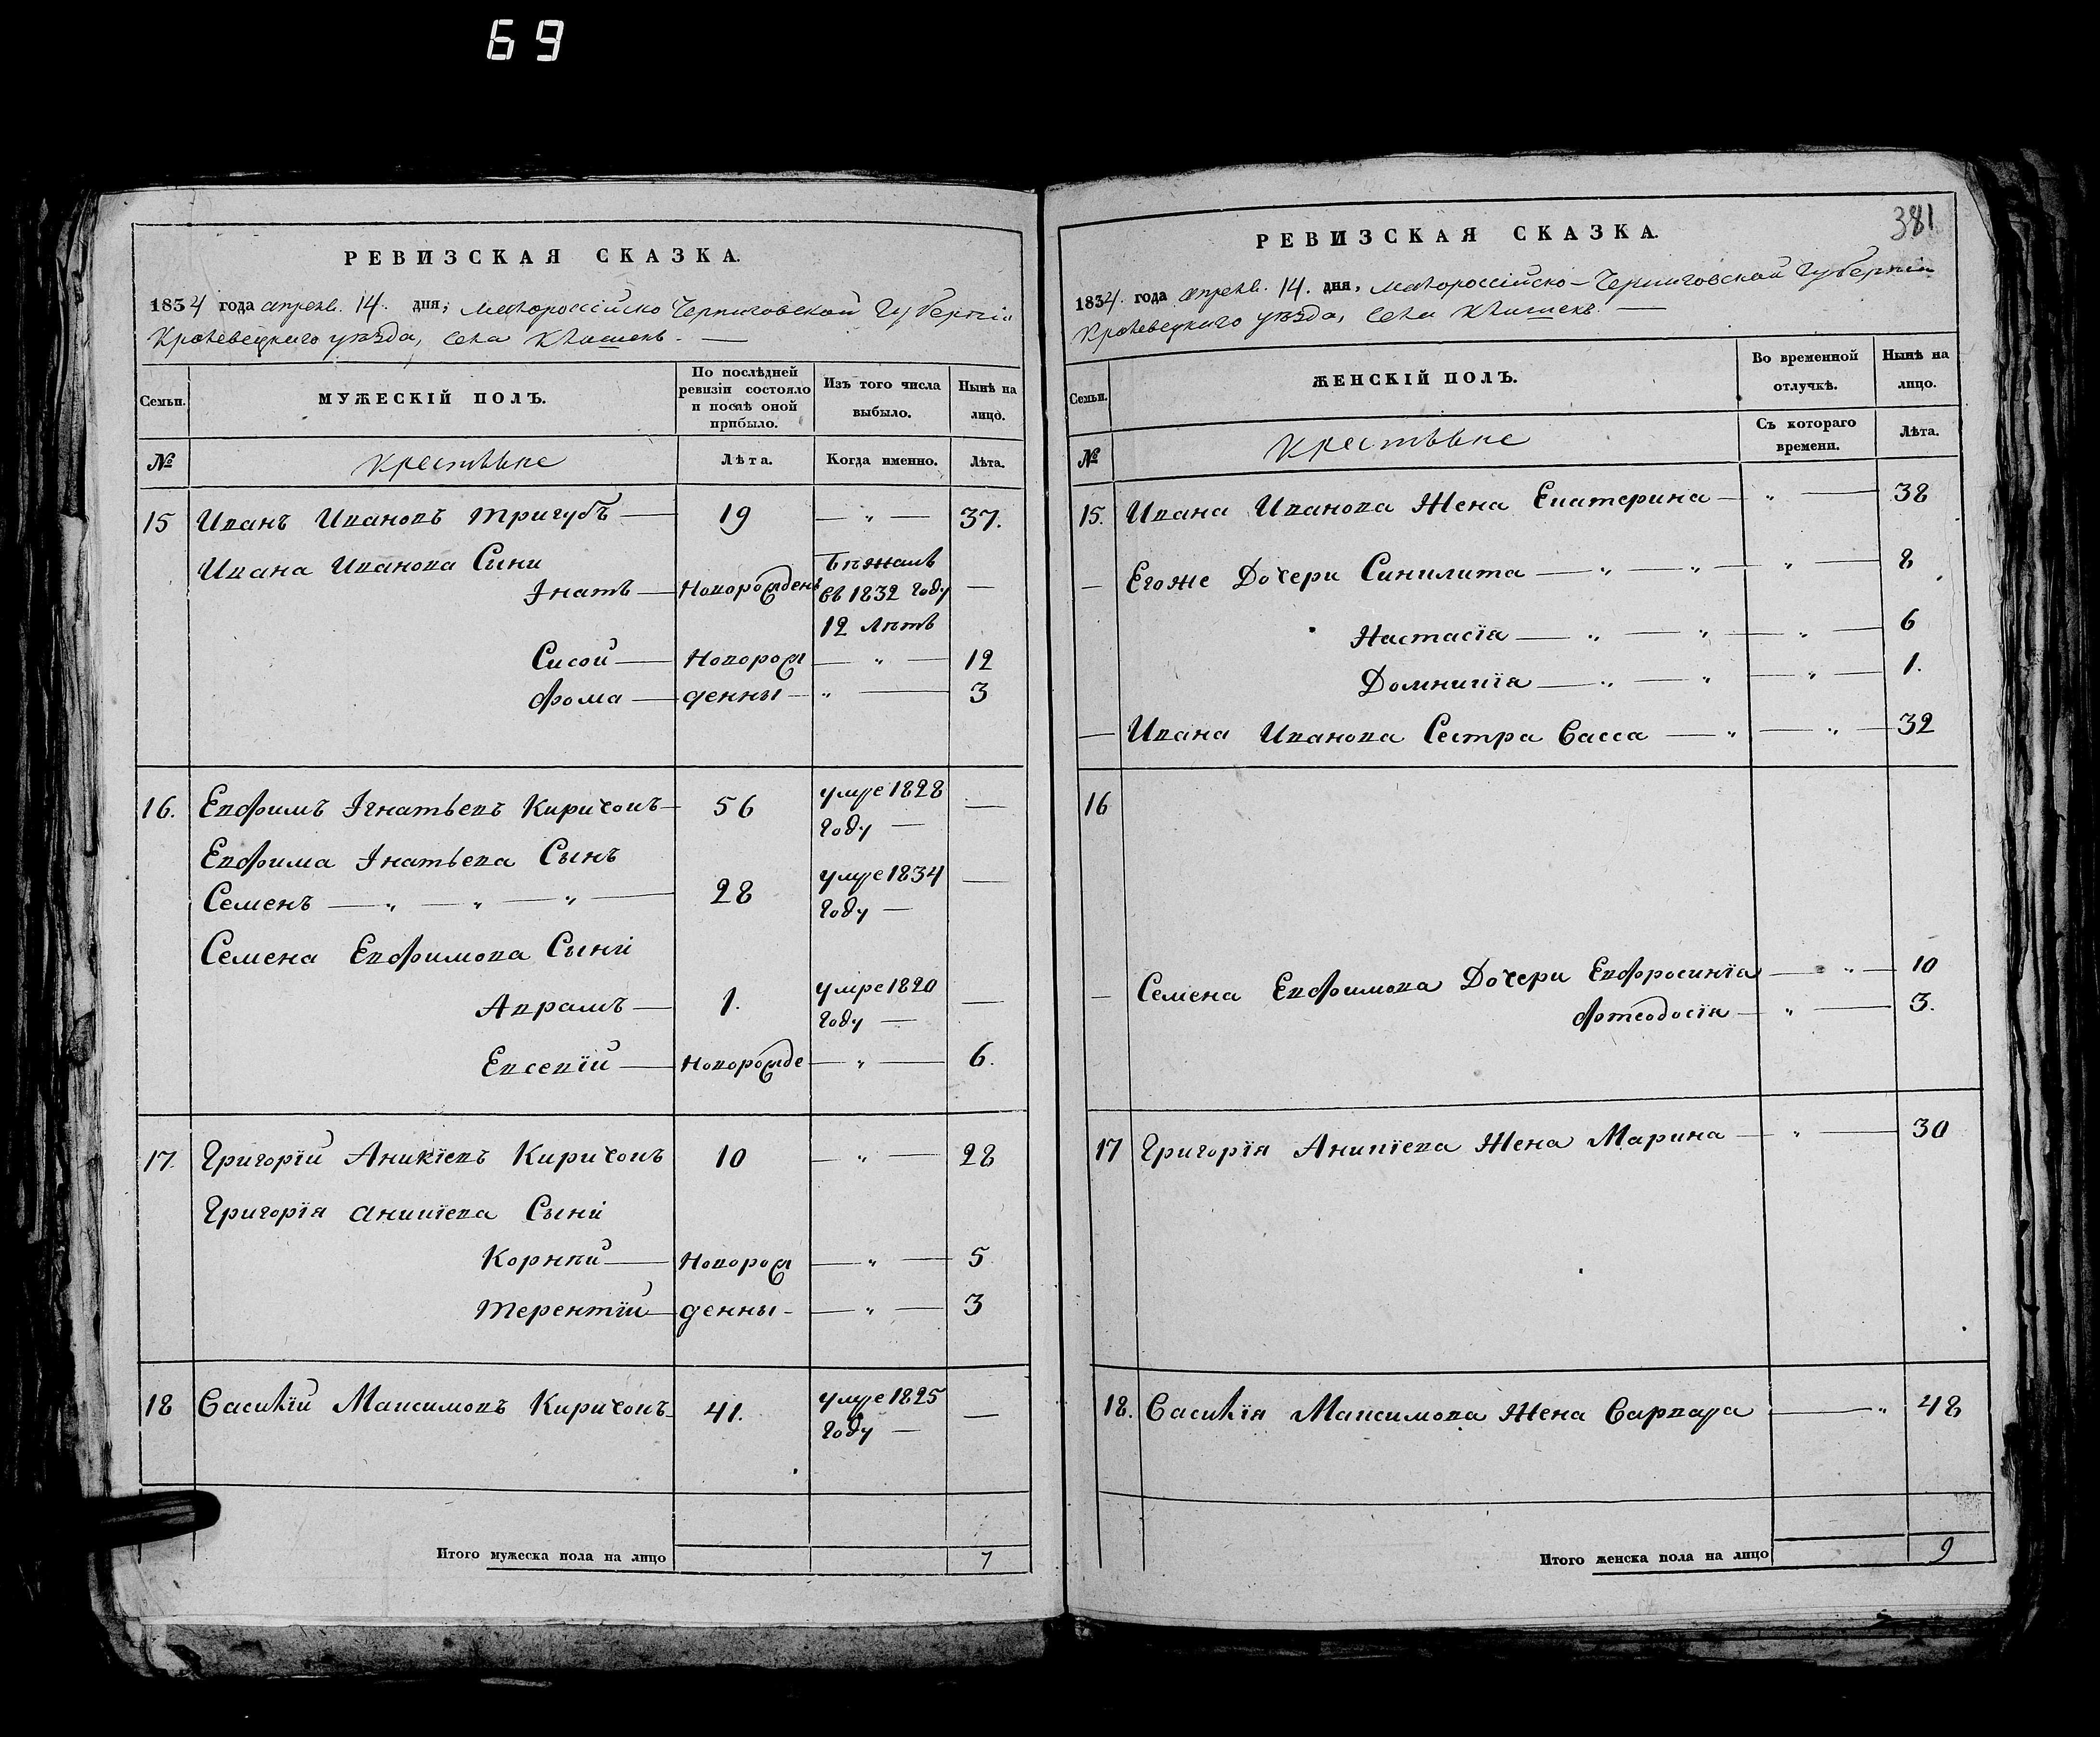 69
РЕВИЗСКАЯ СКАЗКА.
1834 года апреля. 14. дня, Малороссійско Черниговской Губерніи
Кролевецкаго уѣзда, села Клишекъ. —
Семьи.
МУЖЕСКІЙ ПОЛЪ.
По послѣдней
ревизіи состояло
и послѣ оной
прибыло.
Изъ того числа
выбыло.
Нынѣ на
лицо.
№
Крестьяне
Лѣта.
Когда именно.
Лѣта.
15 Иванъ Ивановъ Тригубъ — 19 — „ — 37.
Ивана Иванова Сыни
Бѣжалъ
Інатъ — Новорожденъ въ 1832 году —
12 Лѣтъ
Сисой — Новорож — „ — 12
Фома — денны — „ — 3
16. Евфимъ Ігнатьевъ Киричокъ — 56 умре 1828 —
году —
Евфима Інатьева Сынъ
Семенъ — „ — „ — „ — 28 умре 1834 —
году —
Семена Евфимова Сыни
Аврамъ — 1. умре 1820 —
году —
Евсевій — Новорожде — „ — 6.
17. Григорій Аникіевъ Киричокъ 10 — „ — 28
Григорія Аникіева Сыни
Корнѣй — Новорож — „ — 5
Терентій — денны — — „ — 3
18 Василій Максимовъ Киричокъ 41. умре 1825 —
году —
Итого мужеска пола на лицо 7
381
РЕВИЗСКАЯ СКАЗКА.
1834. года апреля. 14. дня, Малороссійско-Черниговской Губерніи
Кролевецкаго уѣзда, села Клишекъ. —
Семьи.
ЖЕНСКІЙ ПОЛЪ.
Во временной
отлучкѣ.
Нынѣ на
лицо.
№
Крестьяне
Съ котораго
времени.
Лѣта.
15. Ивана Иванова Жена Екатерина — „ — 38
— Егоже Дочери Синклита — „ — „ — „ — 8
Настасія — „ — „ — „ — 6
Домникія — „ — „ — „ — 1.
— Ивана Иванова Сестра Васса — „ — „ — 32
16
— Семена Евфимова Дочери Евфросинія — „ — 10
Фтеодосія — „ — 3.
17 Григорія Аникіева Жена Марина — „ — 30
18. Василія Максимова Жена Варвара — „ 48
Итого женска пола на лицо 9